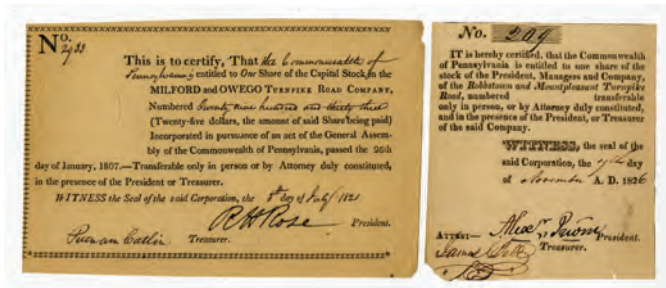 No.
2933
This is to certify, That the Commonwealth of
Pennsylvania is entitled to One Share of the Capital Stock in the
MILFORD and OWEGO TURNPIKE ROAD COMPANY,
Numbered Twenty nine hundred and thirty three
(Twenty-five dollars, the amount of said Share being paid)
Incorporated in pursuance of an act of the General Assem-
bly of the Commonwealth of Pennsylvania, passed the 26th
day of January, 1807.—Transferable only in person or by Attorney duly constituted,
in the presence of the President or Treasurer.
WITNESS the Seal of the said Corporation, the 8th day of July 1821
R H Rose President.
Putnam Catlin Treasurer.
No. 209
IT is hereby certified, that the Commonwealth
of Pennsylvania is entitled to one share of the
stock of the President, Managers and Company,
of the Robbstown and Mountpleasant Turnpike
Road, numbered transferable
only in person, or by Attorney duly constituted,
and in the presence of the President, or Treasurer
of the said Company.
WITNESS, the seal of the
said Corporation, the day
of November A. D. 1826
ATTEST— Alexr President.
James Treasurer.